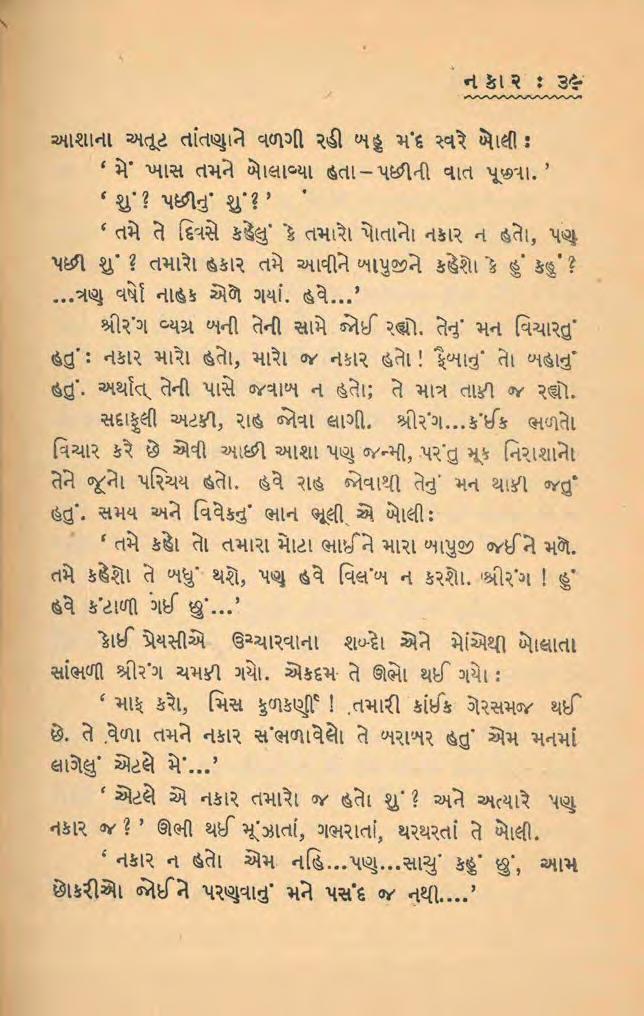 નકાર : ૩૯
આશાના અતૂટ તાંતણાને વળગી રહી બહુ મંદ સ્વરે બોલી :
‘ મેં ખાસ તમને બોલાવ્યા હતા–પછીની વાત પૂછવા. ’
‘ શું ? પછીનું શું ? ’
‘ તમે તે દિવસે કહેલું કે તમારો પોતાનો નકાર ન હતો, પણ
પછી શું ? તમારો હકાર તમે આવીને બાપુજીને કહેશો કે હું કહું ?
...ત્રણ વર્ષો નાહક એળે ગયાં. હવે...’
શ્રીરંગ વ્યગ્ર બની તેની સામે જોઈ રહ્યો. તેનું મન વિચારતું
હતું : નકાર મારો હતો, મારો જ નકાર હતો ! ફૈબાનું તો બહાનું
હતું. અર્થાત્ તેની પાસે જવાબ ન હતો; તે માત્ર તાકી જ રહ્યો.
સદાફુલી અટકી, રાહ જોવા લાગી. શ્રીરંગ...કંઈક ભળતો
વિચાર કરે છે એવી આછી આશા પણ જન્મી, પરંતુ મૂક નિરાશાનો
તેને જૂનો પરિચય હતો. હવે રાહ જોવાથી તેનું મન થાકી જતું
હતું. સમય અને વિવેકનું ભાન ભૂલી એ બોલી :
‘ તમે કહો તો તમારા મોટા ભાઈને મારા બાપુજી જઈને મળે.
તમે કહેશો તે બધું થશે, પણ હવે વિલંબ ન કરશો. શ્રીરંગ ! હું
હવે કંટાળી ગઈ છું...’
કોઈ પ્રેયસીએ ઉચ્ચારવાના શબ્દો એને મોંએથી બોલાતા
સાંભળી શ્રીરંગ ચમકી ગયો. એકદમ તે ઊભો થઈ ગયો :
‘ માફ કરો, મિસ કુળકર્ણી ! તમારી કાંઈક ગેરસમજ થઈ
છે. તે વેળા તમને નકાર સંભળાવેલો તે બરાબર હતું એમ મનમાં
લાગેલું એટલે મેં...’
‘ એટલે એ નકાર તમારો જ હતો શું ? અને અત્યારે પણ
નકાર જ ? ’ ઊભી થઈ મૂંઝાતાં, ગભરાતાં, થરથરતાં તે બોલી.
‘ નકાર ન હતો એમ નહિ...પણ...સાચું કહું છું, આમ
છોકરીઓ જોઈને પરણવાનું મને પસંદ જ નથી....’